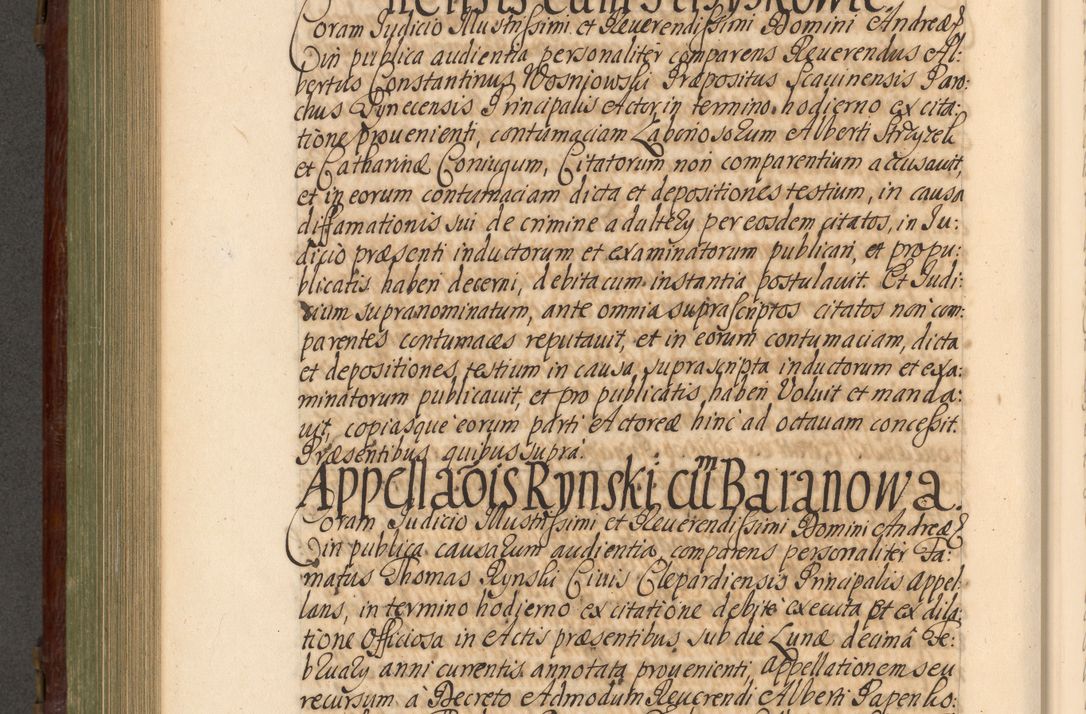 Coram Judicio Illustrissimi et Reverendissimi Domini Andreæ
in publica audientia personaliter comparens Reuerendus Al:
bertus Constantinus Wosniowski Præpositus Scauinensis Paro:
chus Tynecensis Principalis Actor in termino hodierno ex cita:
tione prouenienti, contumaciam Laboriosorum Alberti Strzyzek
et Catharinæ Coniugum, Citatorum non comparentium accusauit,
et in eorum contumaciam dicta et depositiones testium, in causa
diffamationis sui de crimine adultery per eosdem citatos, in Ju:
dicio præsenti inductorum et examinatorum publicari, et pro pu:
blicatis haberi decerni, debita cum instantia postulauit. Et Judi:
cium supranominatum, ante omnia suprascriptos citatos non com:
parentes contumaces reputauit, et in eorum contumaciam, dicta
et depositiones testium in causa suprascripta inductorum et exa:
minatorum publicauit, et pro publicatis haberi Voluit et manda:
uit, copiasque eorum parti Actoreæ hinc ad octauam concessit.
Præsentibus quibus supra.
Appellaõis Rynski cũm Baranowa.
Coram Judicio Illustrissimi et Reuerendissimi Domini Andreæ
in publica causarum audientia comparens personaliter Fa:
matus Thomas Rynski Ciuis Clepardiensis Principalis Appel
lans, in termino hodierno ex citatione debite executa et ex dila
tione Officiosa in Actis præsentibus sub die Lunæ decima Fe:
bruary anni currentis annotata prouenienti, appellationem seu
recursum à Decreto Admodum Reuerendi Alberti Papenko: